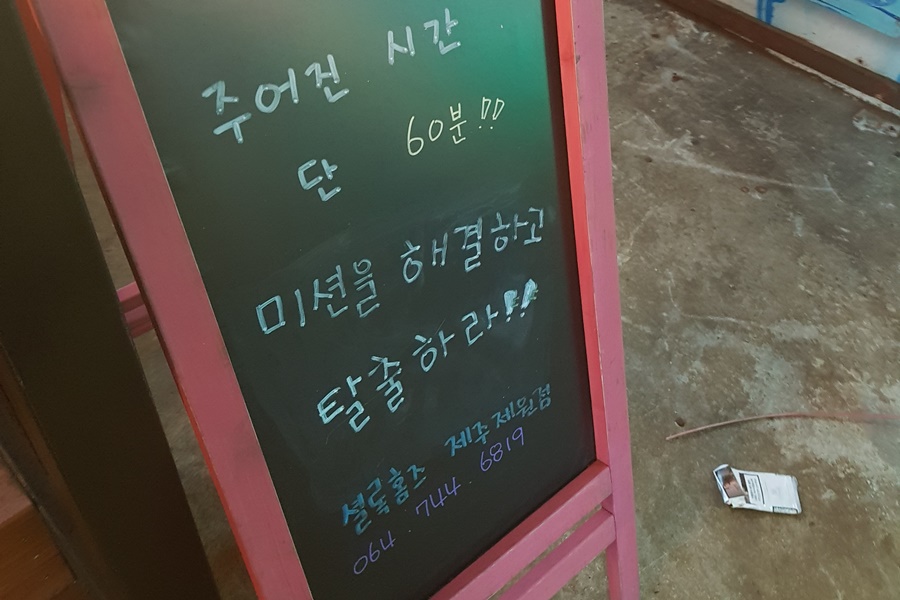 주어진 시간
단 60분!!
미션을 해결하고
탈출하라!!
셜록홈즈 제주제원점
064. 744. 6819